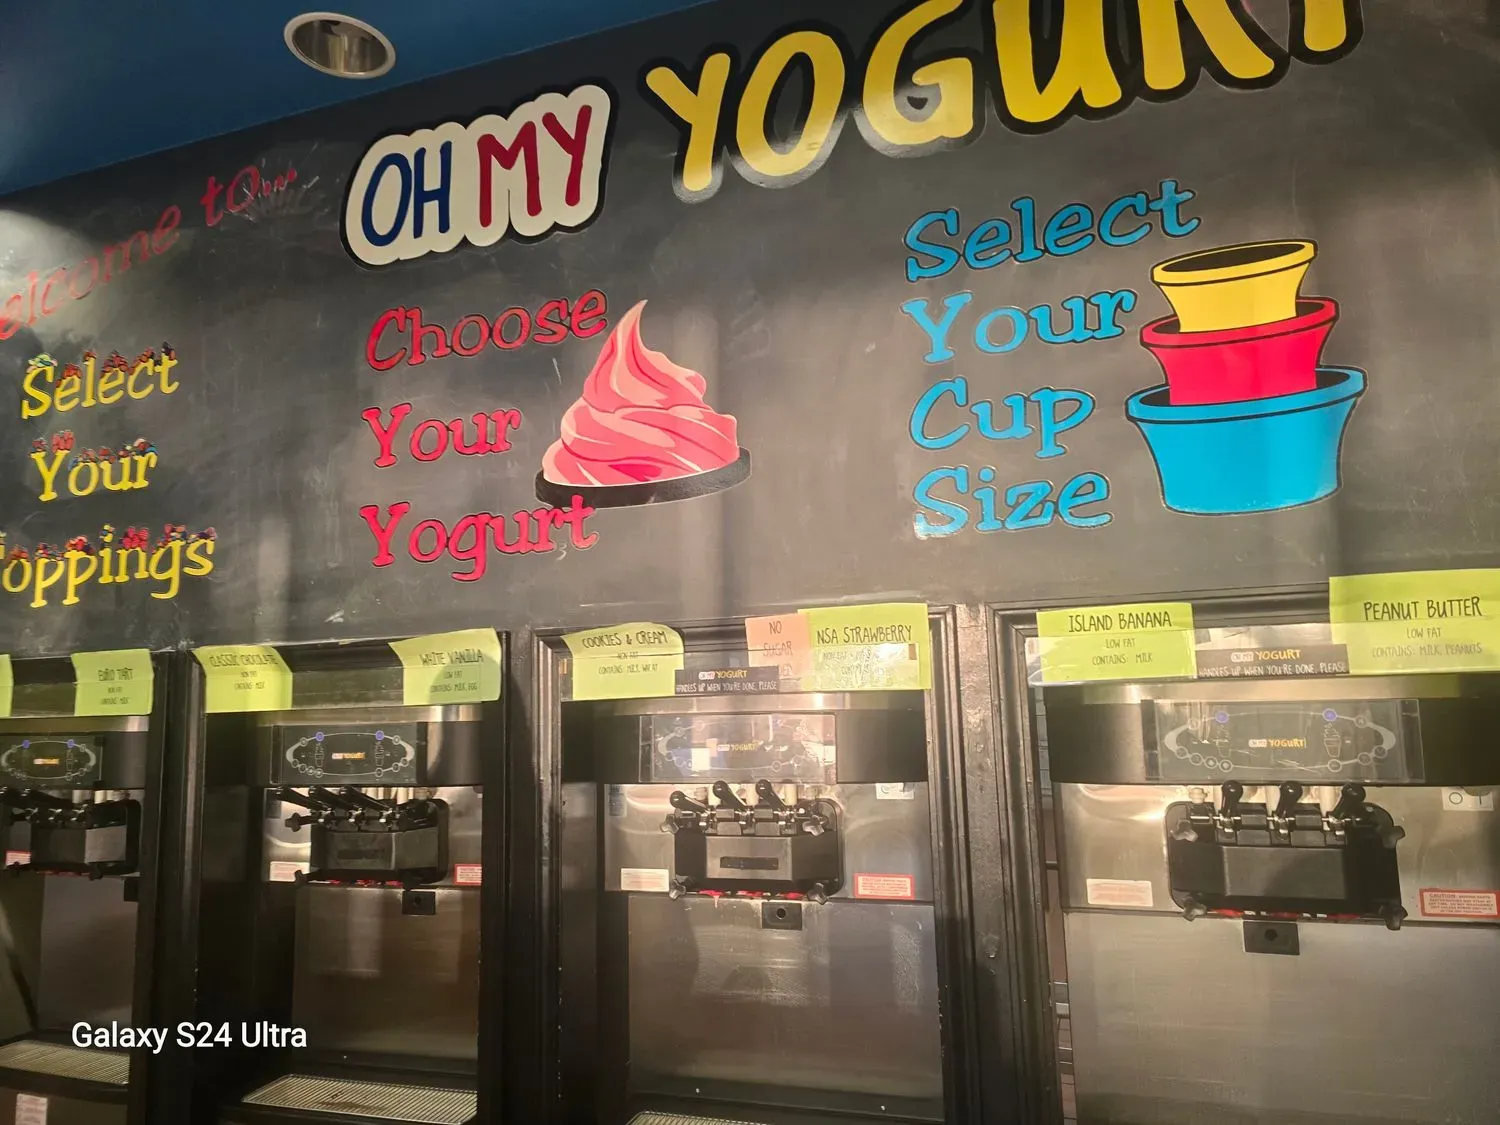 elcome to...
OH MY YOGURT
Select
Your
oppings
Choose
Your
Yogurt
Select
Your
Cup
Size
EURO TART
NON FAT
CONTAINS: MILK
CLASSIC CHOCOLATE
NON FAT
CONTAINS: MILK
WHITE VANILLA
LOW FAT
CONTAINS: MILK, EGG
COOKIES & CREAM
NON FAT
CONTAINS: MILK, WHEAT
NO
SUGAR
NSA STRAWBERRY
OH MY YOGURT
HANDLES UP WHEN YOU'RE DONE, PLEASE
ISLAND BANANA
LOW FAT
CONTAINS: MILK
OH MY YOGURT
HANDLES UP WHEN YOU'RE DONE, PLEASE
PEANUT BUTTER
LOW FAT
CONTAINS: MILK, PEANUTS
OH MY YOGURT
OH MY YOGURT
OH MY YOGURT
CAUTION
Galaxy S24 Ultra